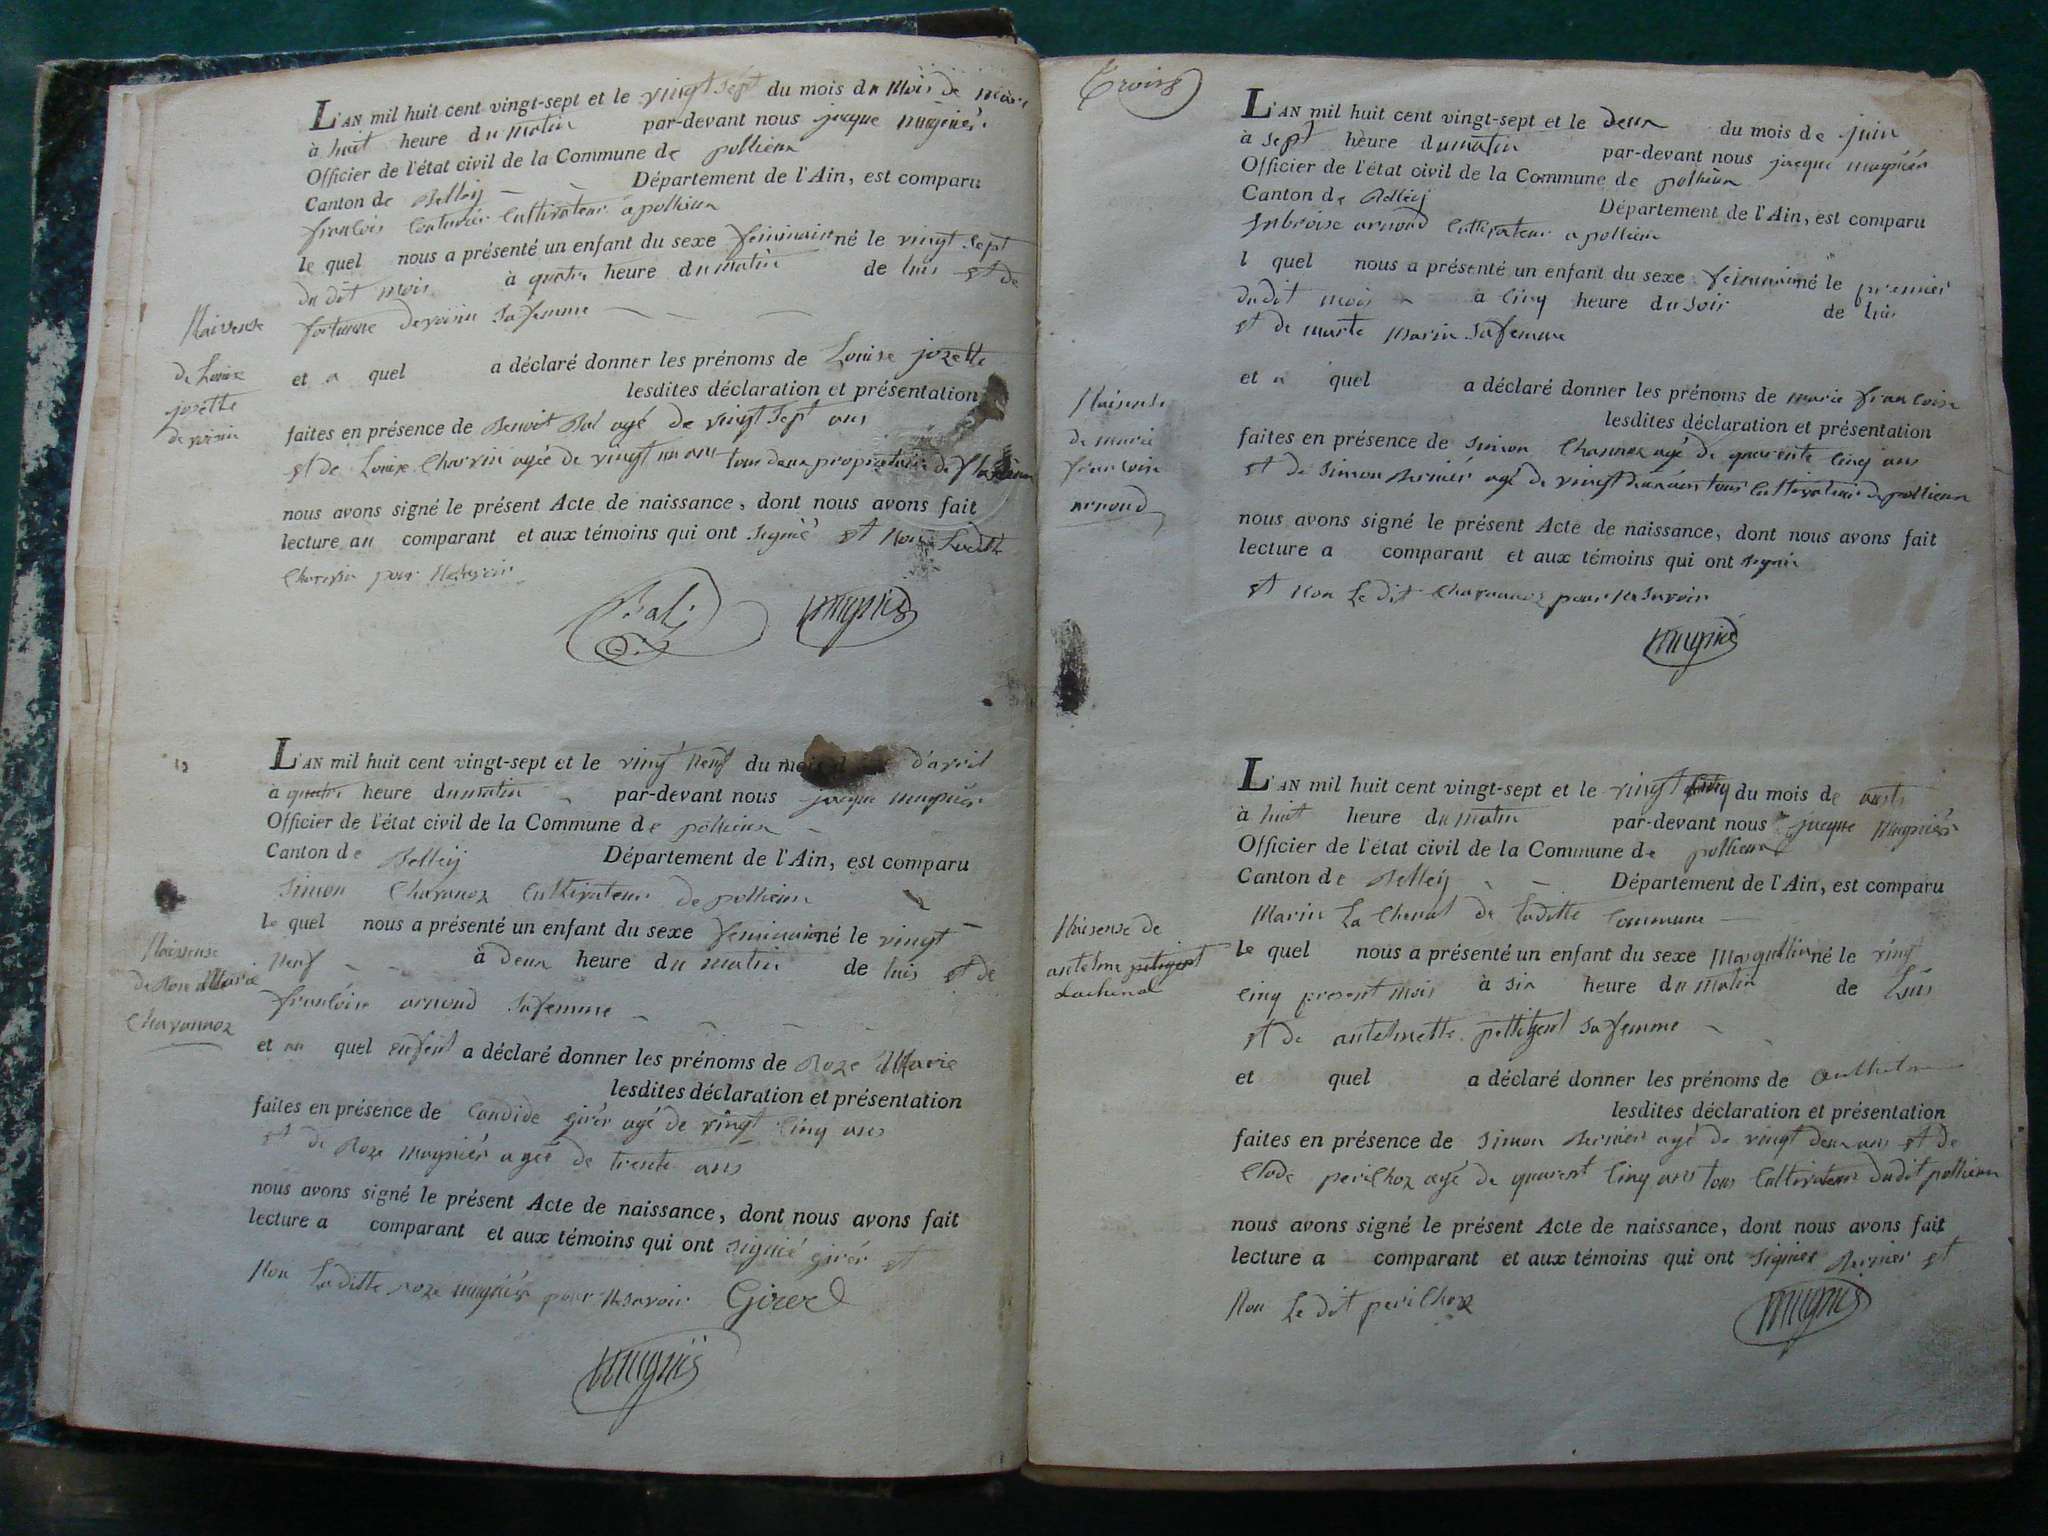 L'AN mil huit cent vingt-sept et le vingt sept du mois du Mois de mars
à huit heure du matin par-devant nous jacque mugniér
Officier de l'état civil de la Commune de pollieux
Canton de Belleÿ Département de l'Ain, est comparu
françois Couturiér Cultivateur a pollieux
le quel nous a présenté un enfant du sexe féminain né le vingt sept
du dit mois à quatre heure du matin de luis et de
fortunne devoisin sa femme
Naisense
de Louise
jozette
et a quel a déclaré donner les prénoms de Louise jozette
lesdites déclaration et présentation
faites en présence de Benoit Bal agé de vingt sept ans
et de Louise Charvin agée de vingt un ans tous deux propriétaire de
nous avons signé le présent Acte de naissance, dont nous avons fait
lecture au comparant et aux témoins qui ont signié et Non Laditte
Charvin pour Nesavoir
Bal mugnier
L'AN mil huit cent vingt-sept et le vingt Neuf du mois d'avril
à quatre heure du matin par-devant nous jacque mugniér
Officier de l'état civil de la Commune de pollieux
Canton de Belleÿ Département de l'Ain, est comparu
Simon Chavanoz Cultivateur de pollieux
le quel nous a présenté un enfant du sexe feminain né le vingt
Neuf à deux heure du matin de luis et de
françoise arnoud sa femme
Naisense
de Rose Marie
Chavannoz
et au quel enfent a déclaré donner les prénoms de Roze Marie
lesdites déclaration et présentation
faites en présence de Candide girér agé de vingt Cinq ans
et de Roze mugniér agée de trente ans
nous avons signé le présent Acte de naissance, dont nous avons fait
lecture a comparant et aux témoins qui ont signié girér et
Non Laditte roze mugniér pour Nesavoir Girer
mugnier
Trois
L'AN mil huit cent vingt-sept et le deux du mois de juin
à sept heure du matin par-devant nous jacque mugniér
Officier de l'état civil de la Commune de pollieux
Canton de Belleÿ Département de l'Ain, est comparu
Anbroise arnoud Cultivateur a pollieux
l quel nous a présenté un enfant du sexe féminin né le premier
du dit mois a Cinq heure du soir de luis
et de marte Marin sa femme
Naisense
de marie
françoise
arnoud
et a quel a déclaré donner les prénoms de marie françoise
lesdites déclaration et présentation
faites en présence de Simon Chavanoz agé de quarente Cinq ans
et de Simon Berniér agé de vingt deux ans tous Cultivateur de pollieux
nous avons signé le présent Acte de naissance, dont nous avons fait
lecture a comparant et aux témoins qui ont signié
et Non Le dit Chavannoz pour Nesavoir
mugnier
L'AN mil huit cent vingt-sept et le vingt Cinq du mois de
à huit heure du matin par-devant nous jacque Mugniér
Officier de l'état civil de la Commune de pollieux
Canton de Belleÿ Département de l'Ain, est comparu
Marin La Chenal de laditte Commune
Naisense de
antelme petigent
Lachenal
le quel nous a présenté un enfant du sexe Masqullin né le vingt
Cinq present Mois à six heure du Matin de Luis
et de antelmette petitjent sa femme
et quel a déclaré donner les prénoms de anthelme
lesdites déclaration et présentation
faites en présence de Simon Bernier agé de vingt deux ans et de
Clode perichoz agé de quarent Cinq ans tous Cultivateur dudit pollieux
nous avons signé le présent Acte de naissance, dont nous avons fait
lecture a comparant et aux témoins qui ont signier Bernier et
Non Le dit perichoz
mugnier